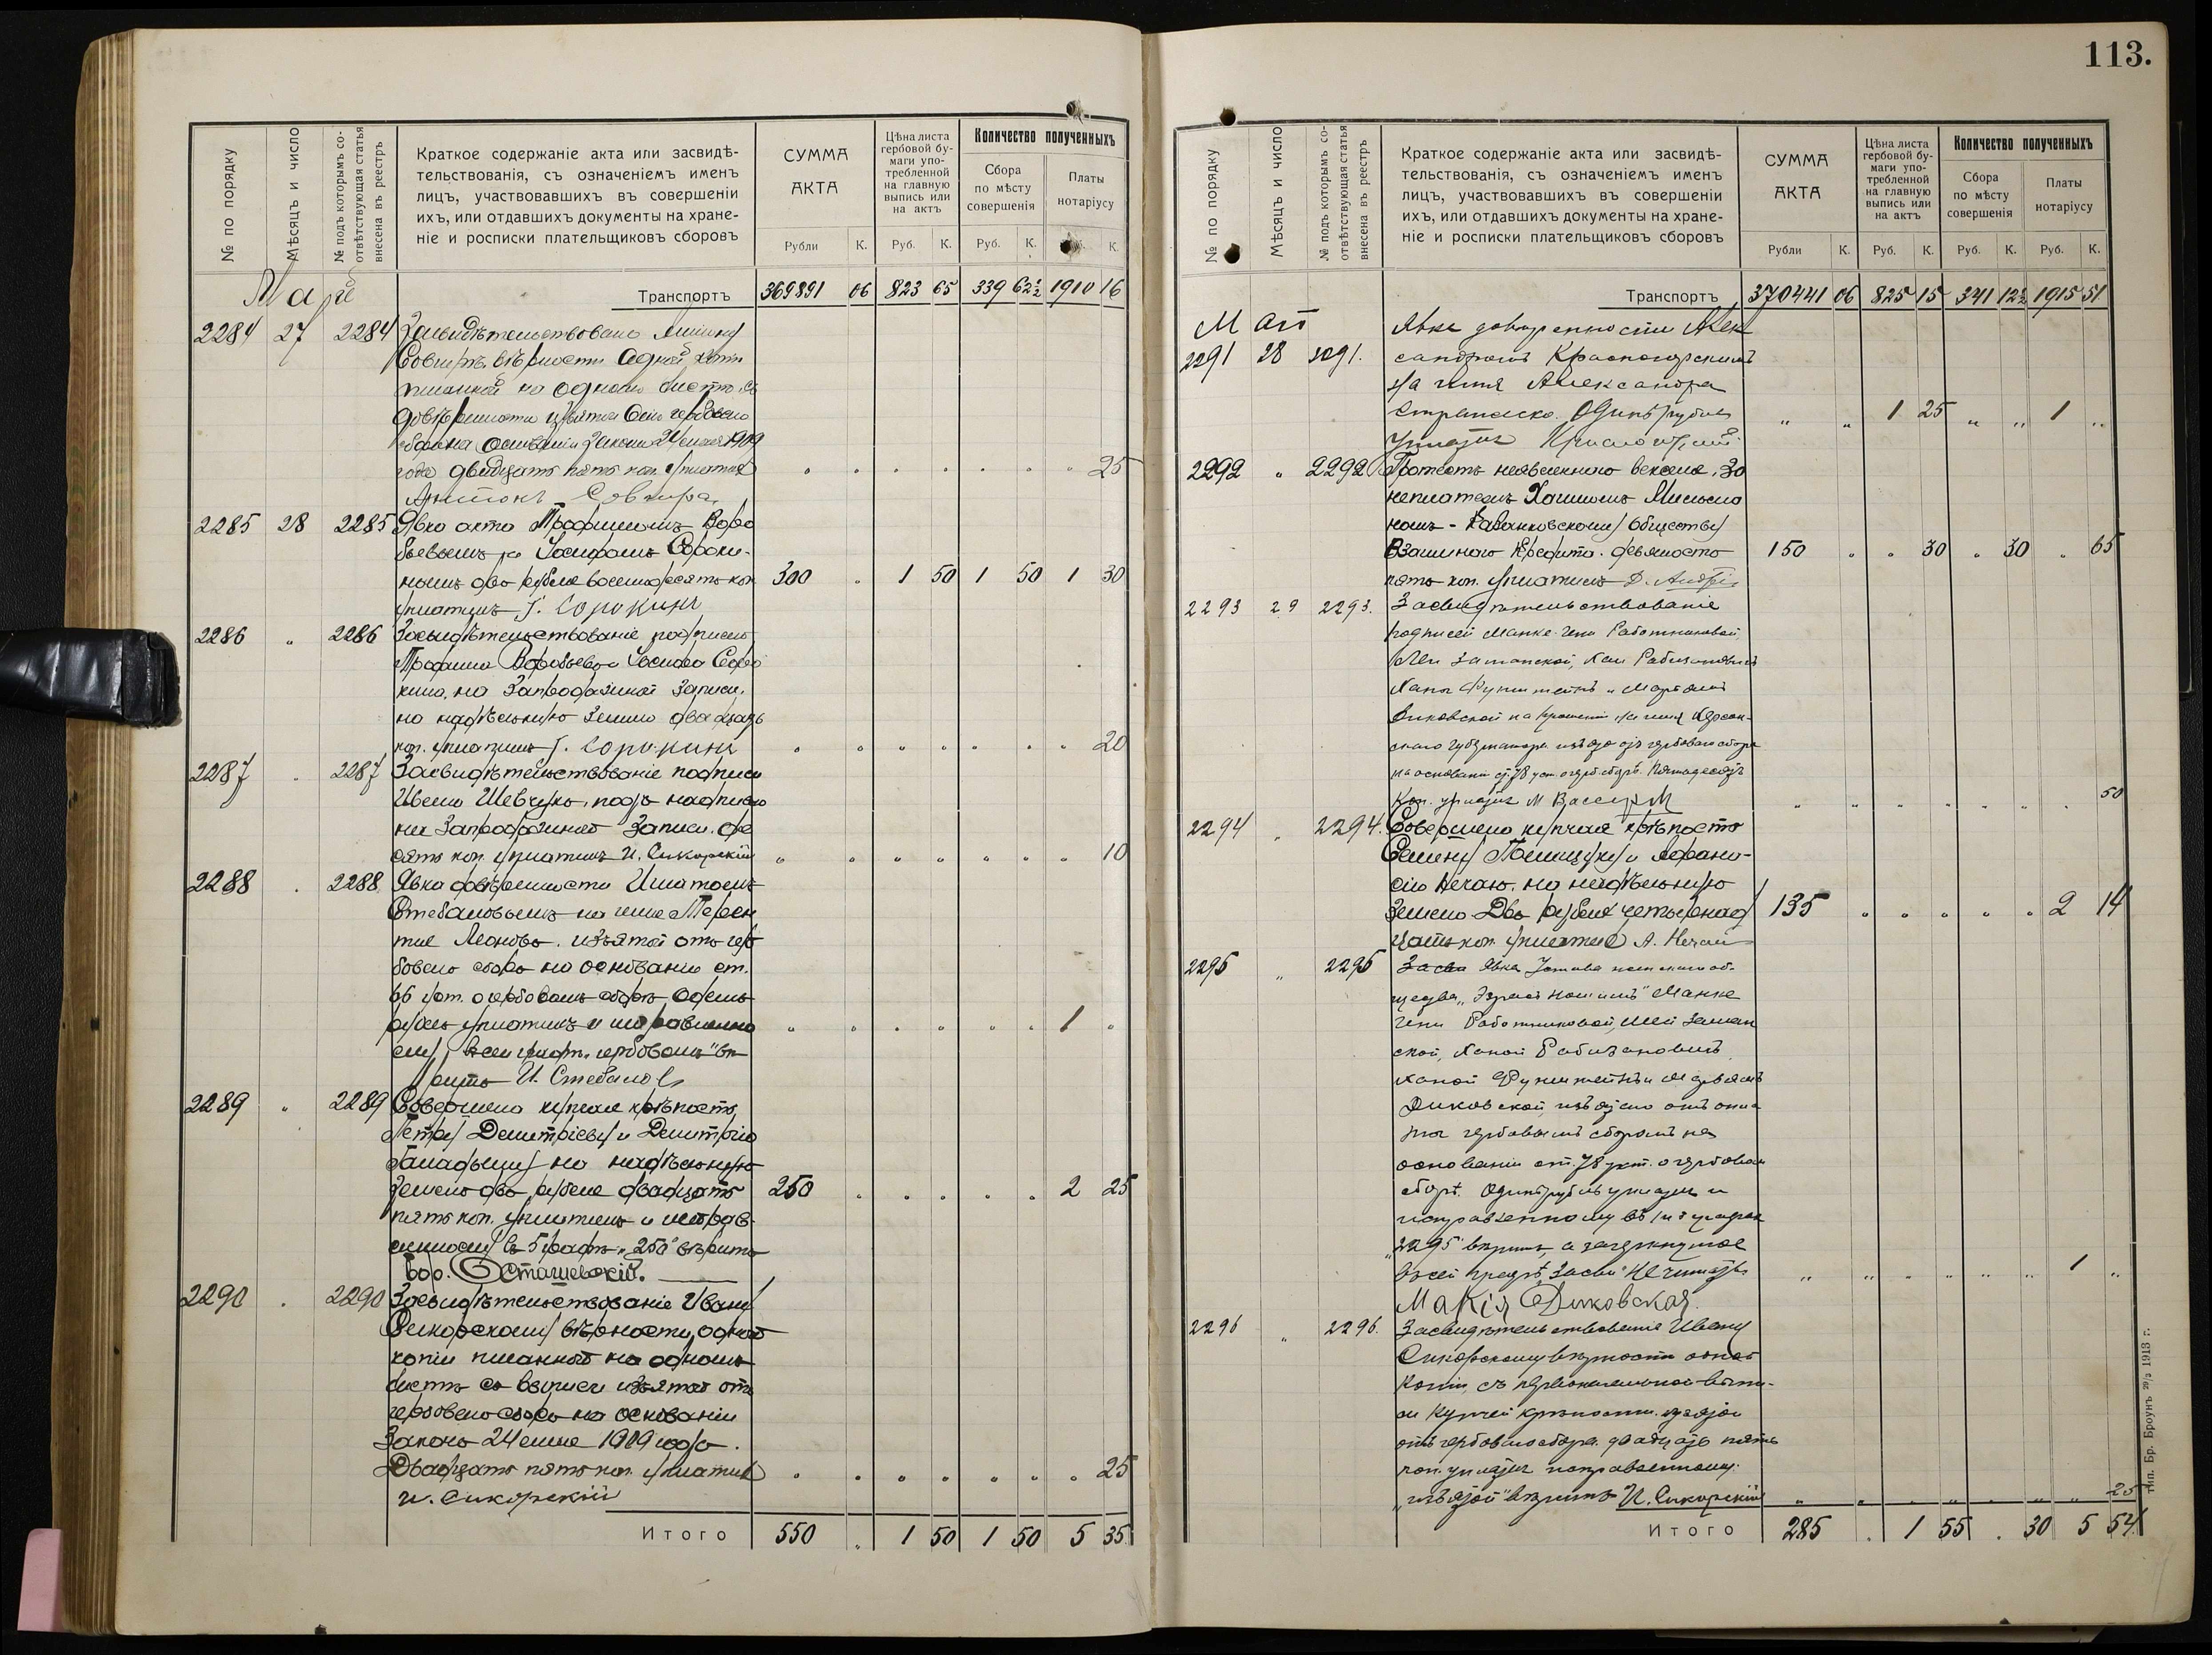 113.
№ по порядку
Мѣсяцъ и число
№ подъ которымъ со-
отвѣтствующая статья
внесена въ реестръ
Краткое содержаніе акта или засвидѣ-
тельствованія, съ означеніемъ именъ
лицъ, участвовавшихъ въ совершеніи
ихъ, или отдавшихъ документы на хране-
ніе и росписки плательщиковъ сборовъ
СУММА
АКТА
Рубли К.
Цѣна листа
гербовой бу-
маги упо-
требленной
на главную
выпись или
на актъ
Руб. К.
Количество полученныхъ
Сбора
по мѣсту
совершенія
Руб. К.
Платы
нотаріусу
К.
Транспортъ 369891 06 823 65 339 62½ 1910 16
2284 27 2284 Засвидѣтельствовано
вѣрность одной копіи
писанной на одномъ листѣ съ
довѣренности изъятой
сбора на основаніи закона 24 мая 1909
года двадцать пять коп. уплатилъ 25
2285 28 2285 Явка акта Трофимомъ Воро
бьевымъ и Іосифомъ Сороки-
нымъ два рубля восемьдесятъ коп. 300 1 50 1 50 1 30
уплатилъ І. Сорокинъ
2286 " 2286 Засвидѣтельствованіе подписей
Трофима Воробьева и Іосифа Соро
кина, на запродажной записи,
на надѣльную землю двадцать
коп. уплатилъ І. Сорокинъ 20
2287 2287 Засвидѣтельствованіе подписи
Ивана Шевчука, подъ надписью
на запродажной записи. де
сять коп. уплатилъ И. Сикорскій 10
2288 2288 Явка довѣренности Игнатомъ
Стебановымъ на имя Терен
тія Леонова. изъятой отъ гер
боваго сбора на основаніи ст.
66 уст. о гербовомъ сборѣ одинъ
рубль уплатилъ и исправленно
му гербовомъ" вѣ 1
рить И. Стебанов
2289 " 2289 Совершена купчая крѣпость,
Петру Димитріеву и Димитрію
на надѣльную
землю два рубля двадцать 250 2 25
пять коп. уплатилъ и исправ-
ленному въ 5 графѣ "250" вѣрить
Осташевскій.
2290 2290 Засвидѣтельствованіе Ивану
Сикорскому вѣрности одной
копіи писанной на одномъ
листѣ съ выписи изъятой отъ
гербоваго сбора на основаніи
Закона 24 мая 1909 года.
Двадцать пять коп. уплатилъ 25
И. Сикорскій
Итого 550 1 50 1 50 5 35
№ по порядку
Мѣсяцъ и число
№ подъ которымъ со-
отвѣтствующая статья
внесена въ реестръ
Краткое содержаніе акта или засвидѣ-
тельствованія, съ означеніемъ именъ
лицъ, участвовавшихъ въ совершеніи
ихъ, или отдавшихъ документы на хране-
ніе и росписки плательщиковъ сборовъ
СУММА
АКТА
Рубли К.
Цѣна листа
гербовой бу-
маги упо-
требленной
на главную
выпись или
на актъ
Руб. К.
Количество полученныхъ
Сбора
по мѣсту
совершенія
Руб. К.
Платы
нотаріусу
Руб. К.
Транспортъ 370441 06 825 15 341 12½ 1915 51
Явка доверенности Алек
2291 28 2291. сандромъ Красногорскимъ
на имя Александра
Одинъ рубль 1 25 1
уплатилъ
2292 " 2292 Протестъ неявленнаго векселя, за
неплатежъ
Обществу
Взаимнаго Кредита. девяносто 150 30 30 65
пять коп. уплатилъ
2293 29 2293. Засвидѣтельствованіе
подписей Работниковой,
Ханы
Диковской на прошеніи на имя Херсон-
скаго губернатора гербоваго сбора
на основаніи ст. 78 уст. о герб. сборѣ. Пятьдесятъ
коп. уплатилъ 50
2294 " 2294. Совершена купчая крѣпость
Семену и Афана-
сію Нечаю. на надѣльную
землю Два рубля четырнад 135 2 14
цать коп. уплатилъ А. Нечай
2295 " 2295 Засви Явка Устава об-
щества
Работниковой,
ской, Ханой
Ханой
Диковской, отъ опла
ты гербовымъ сборомъ на
основаніи ст. 78 уст. о гербовом
сборѣ. Одинъ рубль уплатилъ и
исправленному въ графѣ
"2295" вѣрить, а зачеркнутое
"Засви" не читать 1
Марія Диковская.
2296 " 2296. Засвидѣтельствованіе Ивану
Сикорскому вѣрности одной
копіи, съ выпи-
си купчей крѣпости. изъятой
отъ гербоваго сбора. двадцать пять
коп. уплатилъ исправленному:
"изъятой" вѣрить И. Сикорскій 25
Итого 285 1 55 30 5 54
Тип. Бр. Броунъ 1913 г.